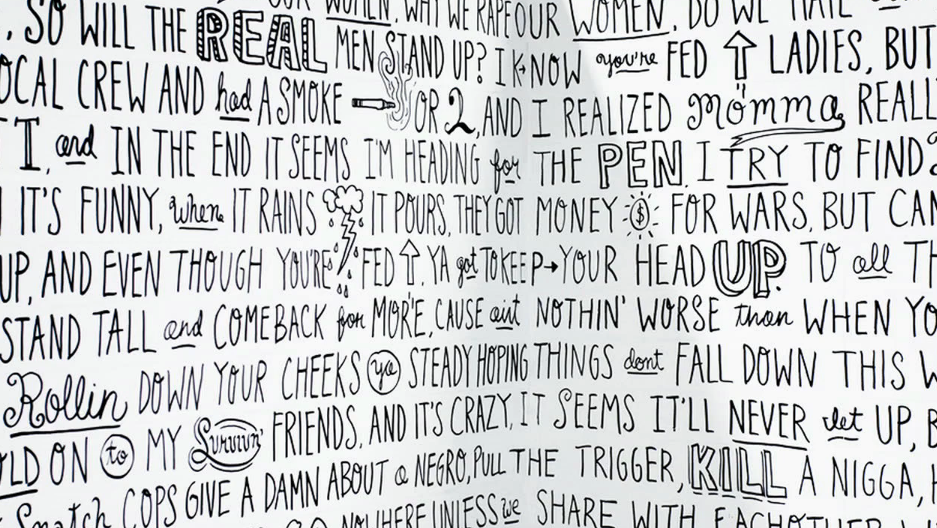 OUR WOMEN, WHY WE RAPE OUR WOMEN, DO WE HATE
, SO WILL THE REAL MEN STAND UP? I KNOW you're FED ↑ LADIES, BUT
OCAL CREW AND had A SMOKE OR 2, AND I REALIZED momma REALL
I, and IN THE END IT SEEMS I'M HEADING for THE PEN. I TRY TO FIND
IT'S FUNNY, when IT RAINS IT POURS, THEY GOT MONEY $ FOR WARS, BUT CAN
UP, AND EVEN THOUGH YOU'RE FED ↑, YA got TO KEEP→YOUR HEAD UP. TO all TH
STAND TALL and COMEBACK for MORE, CAUSE aint NOTHIN' WORSE than WHEN YO
Rollin DOWN YOUR CHEEKS ya STEADY HOPING THINGS dont FALL DOWN THIS W
LD ON to MY Survivin' FRIENDS, AND IT'S CRAZY, IT SEEMS IT'LL NEVER let UP, B
Snatch COPS GIVE A DAMN ABOUT a NEGRO, PULL THE TRIGGER, KILL A NIGGA, H
NOWHERE UNLESS we SHARE WITH EACHOTHER